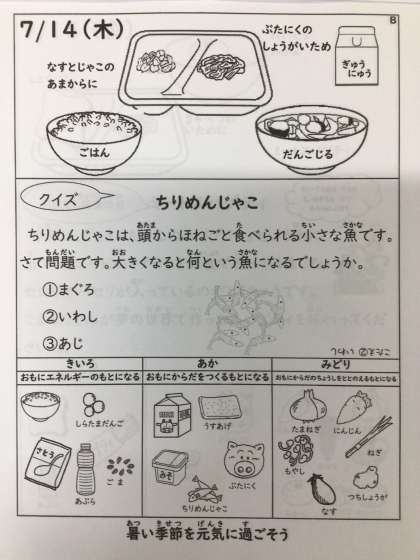 7/14(木)
8
ぶたにくの
しょうがいため
なすとじゃこの
あまからに
ぎゅう
にゅう
ごはん
だんごじる
クイズ
ちりめんじゃこ
ちりめんじゃこは、頭からほねごと食べられる小さな魚です。
さて問題です。大きくなると何という魚になるでしょうか。
①まぐろ
②いわし
③あじ
きいろ
おもにエネルギーのもとになる
しらたまだんご
さとう
あぶら
ごま
あか
おもにからだをつくるもとになる
うすあげ
みそ
ぶたにく
ちりめんじゃこ
みどり
おもにからだのちょうしをととのえるもとになる
たまねぎ
にんじん
もやし
ねぎ
なす
つちしょうが
暑い季節を元気に過ごそう